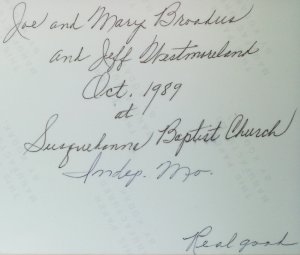 Joe and Mary Broadus
and Jeff Westmoreland
Oct. 1989
at
Susquehanna Baptist Church
Indep. Mo.
Real good